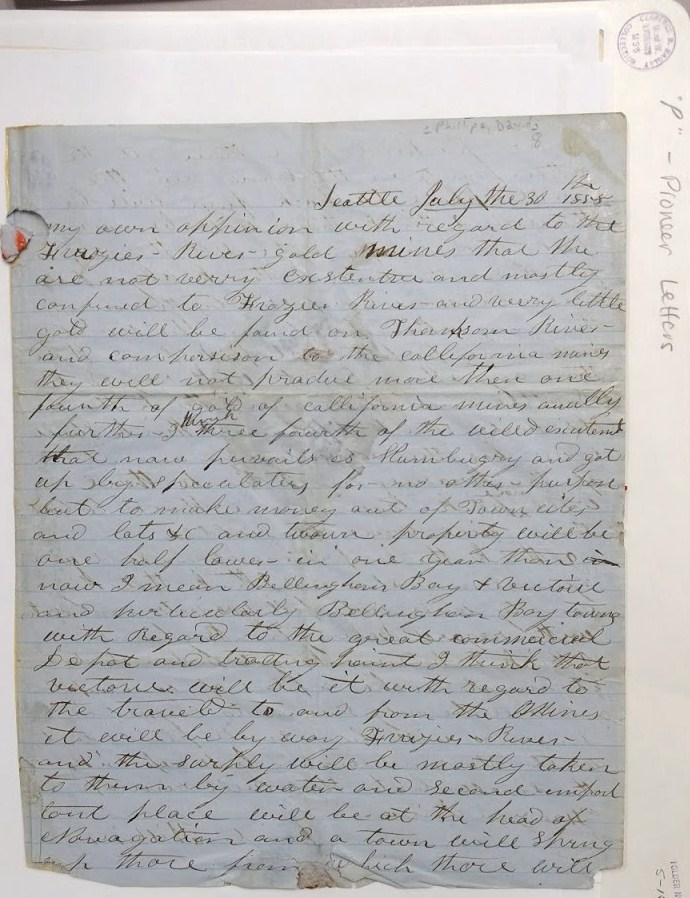 Phillips, David
8
Seattle July the 30th 1858
my own oppinion with regard to the
Frazies River gold mines that the
are not verry Extentive and mostly
confined to Frazies River and verry little
gold will be found on Thomson River
and comparison to the callifornia mines
they will not produe more then one
fourth of gold of callifornia mines anually
further I think three fourth of the wild exsitement
that now prevails is Humbugry and got
up by speculators for no other purpose
but to make money out of Town cites
and lots &c and town property will be
one half lower in one year than
now I mean Bellingham Bay & victoria
and perticularly Bellingham Bay towns
with Regard to the great commercial
Depot and trading point I think that
victoria will be it with regard to
the traveld to and from the Mines
it will be by way Frazies River
and the surply will be mostly taken
to them by water and second import
tant place will be at the head of
Navagation and a town will Spring
up thare from which thare will
"P" - Pioneer Letters
CLARENCE B. BAGLEY
COLLECTION
FOLDER N
5-1